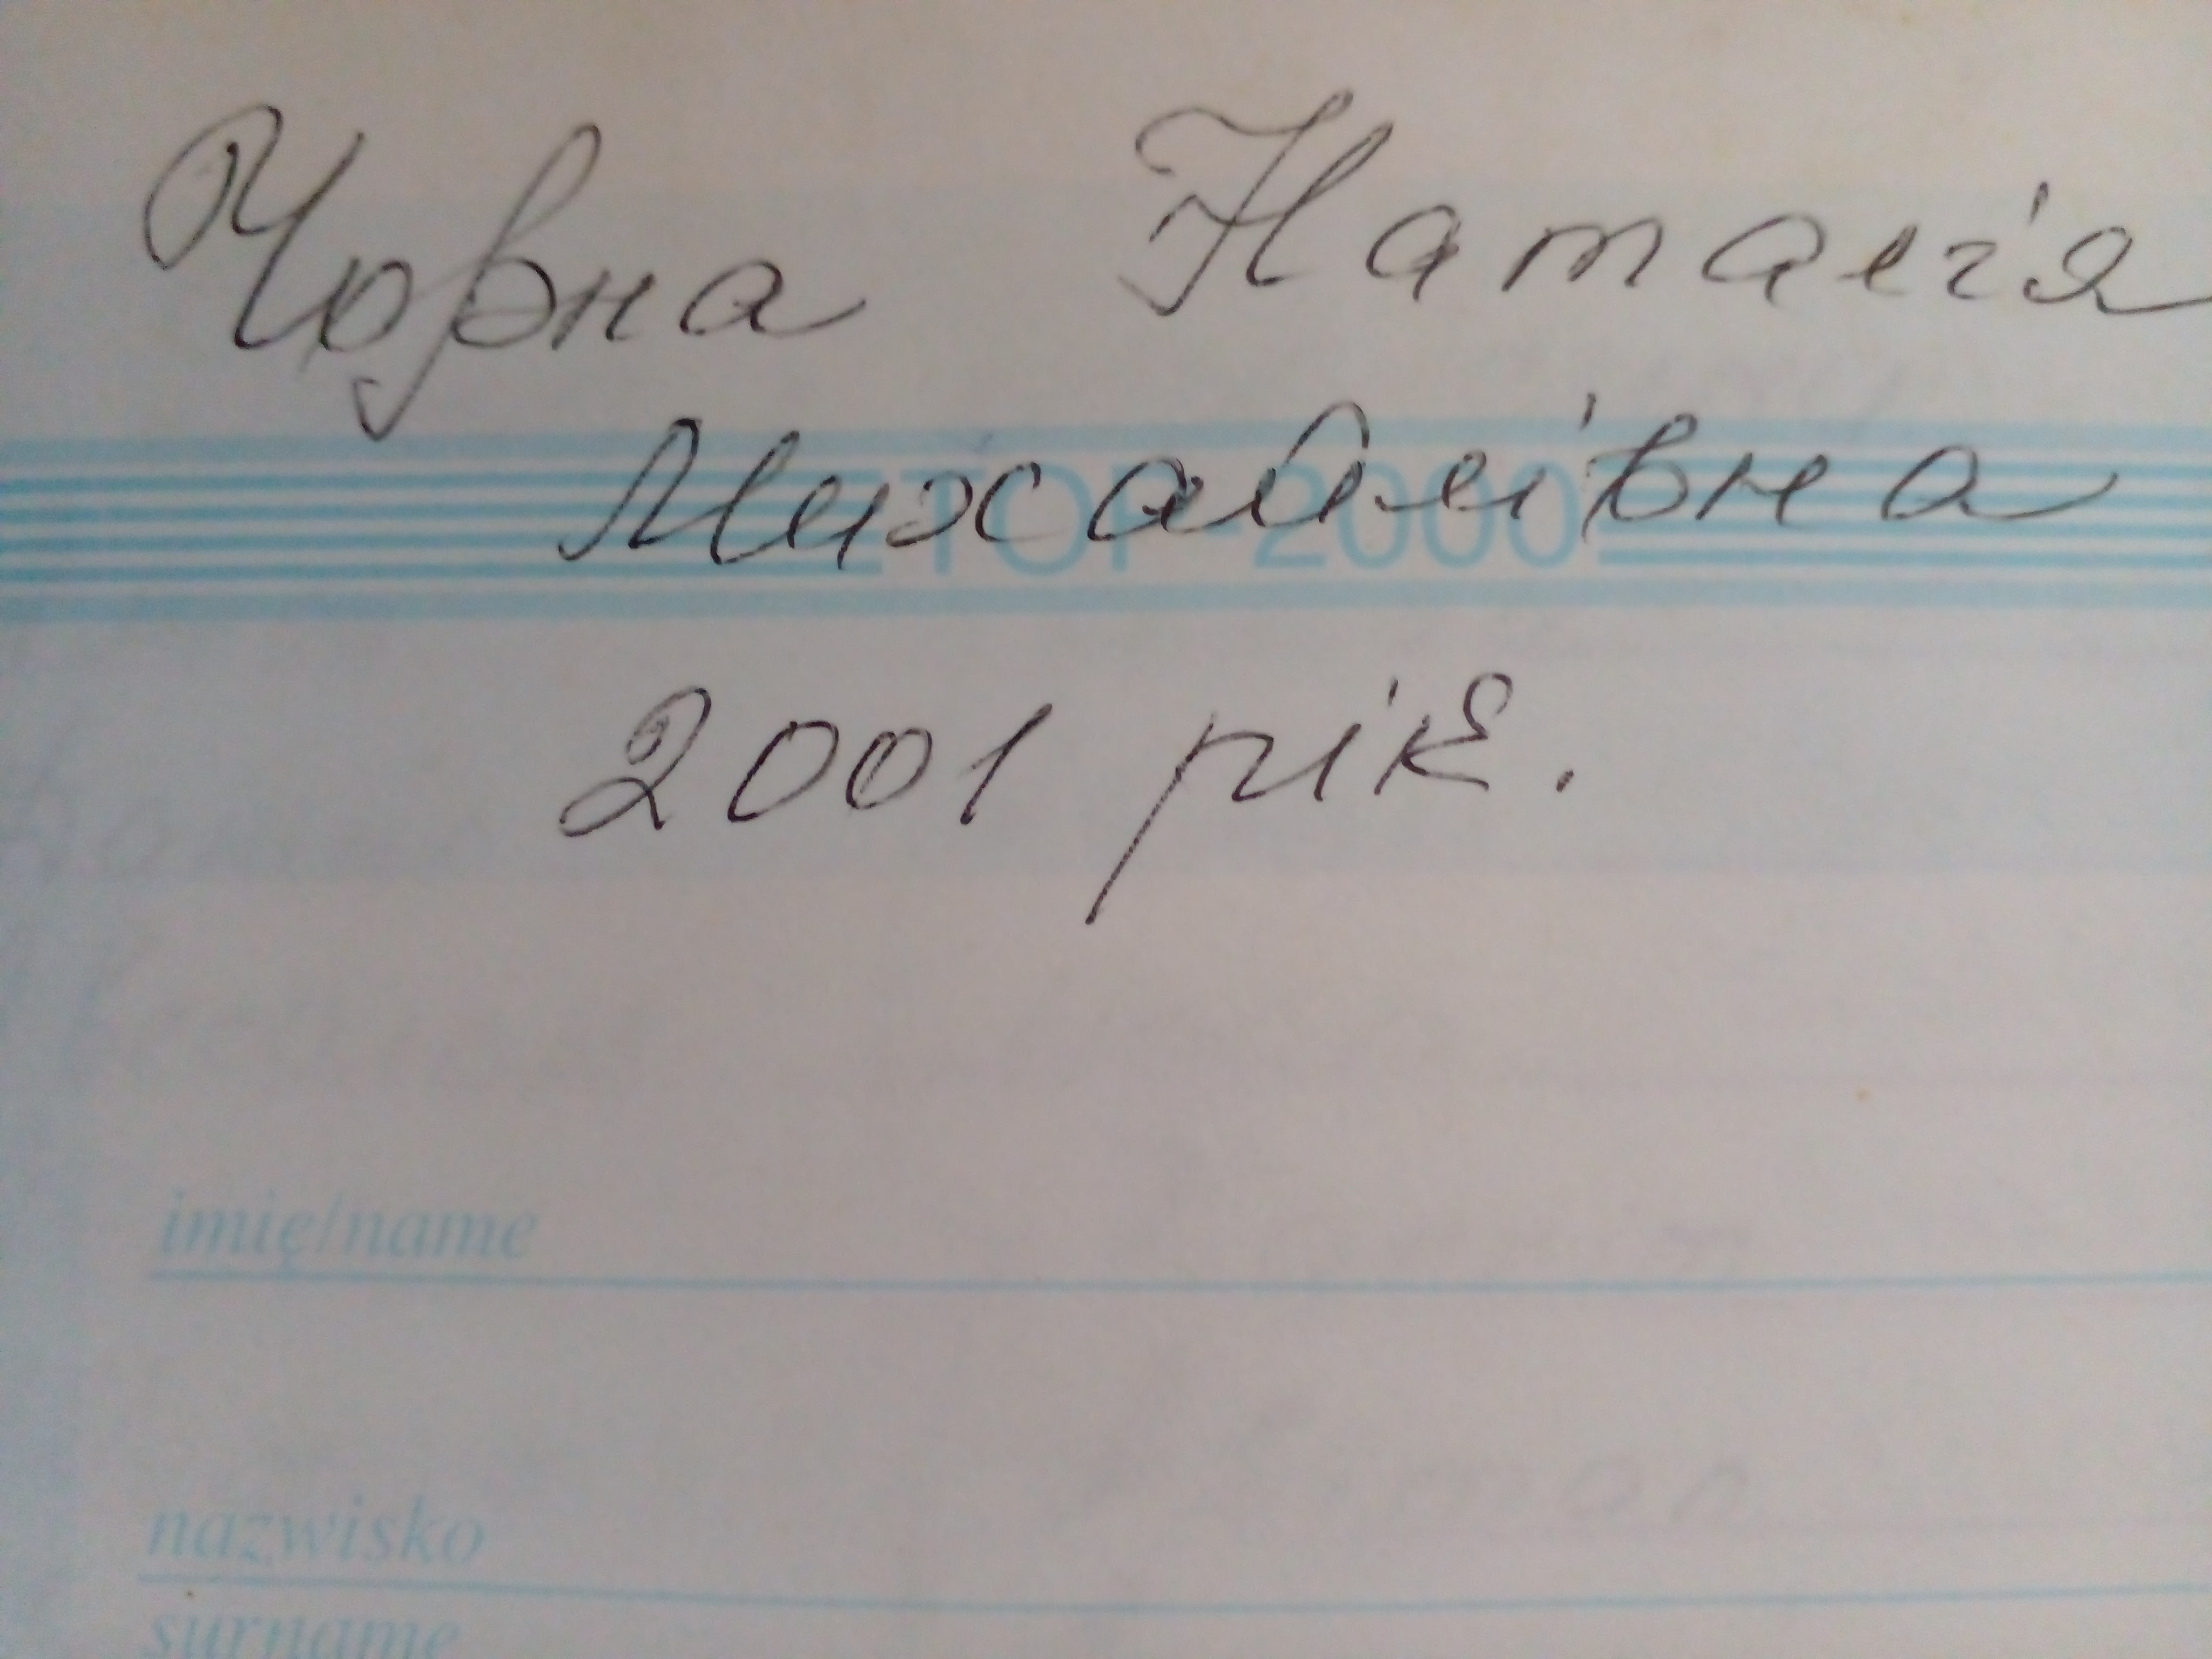 Чорна Наталія
Михайлівна
TOP-2000
2001 рік.
imię/name
nazwisko
surname